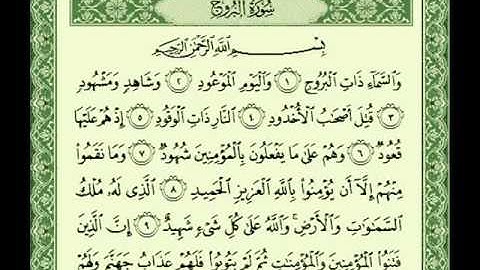 سُورَةُ الْبُرُوجِ
بِسْمِ اللَّهِ الرَّحْمَٰنِ الرَّحِيمِ
وَالسَّمَاءِ ذَاتِ الْبُرُوجِ ١ وَالْيَوْمِ الْمَوْعُودِ ٢ وَشَاهِدٍ وَمَشْهُودٍ
٣ قُتِلَ أَصْحَابُ الْأُخْدُودِ ٤ النَّارِ ذَاتِ الْوَقُودِ ٥ إِذْ هُمْ عَلَيْهَا
قُعُودٌ ٦ وَهُمْ عَلَىٰ مَا يَفْعَلُونَ بِالْمُؤْمِنِينَ شُهُودٌ ٧ وَمَا نَقَمُوا
مِنْهُمْ إِلَّا أَن يُؤْمِنُوا بِاللَّهِ الْعَزِيزِ الْحَمِيدِ ٨ الَّذِي لَهُ مُلْكُ
السَّمَاوَاتِ وَالْأَرْضِ ۚ وَاللَّهُ عَلَىٰ كُلِّ شَيْءٍ شَهِيدٌ ٩ إِنَّ الَّذِينَ
فَتَنُوا الْمُؤْمِنِينَ وَالْمُؤْمِنَاتِ ثُمَّ لَمْ يَتُوبُوا فَلَهُمْ عَذَابُ جَهَنَّمَ وَلَهُمْ